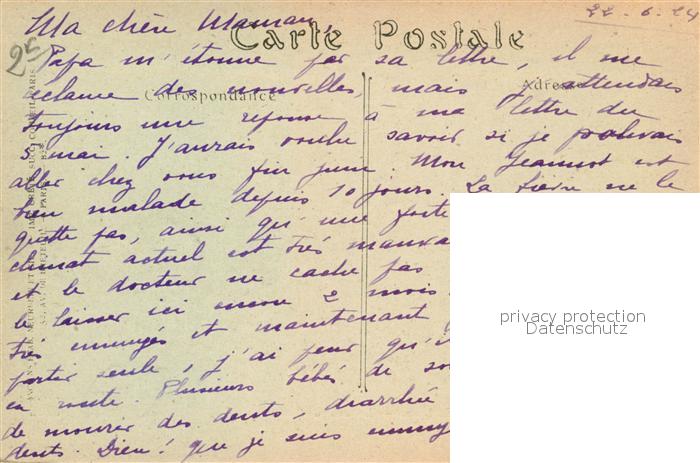 22-6-24
Ma chère Maman,
Carte Postale
25
Papa m'étonne par sa lettre, il me
Correspondance
Adresse
réclame des nouvelles, mais j'attendais
toujours une réponse à ma lettre du
5 mai. J'aurais voulu savoir si je pouvais
aller chez vous fin juin. Mon Jeannot est
bien malade depuis 10 jours. La fièvre ne le
quitte pas, ainsi qu'une forte
climat actuel est très mauva
et le docteur ne cache pas
le laisser ici encore 2 mois
très ennuyés et maintenant
partir seule, j'ai peur qu'i
en route. Plusieurs bébés de so
de mourir des dents, diarrhée
dents. Dieu! que je suis ennuy
privacy protection
Datenschutz